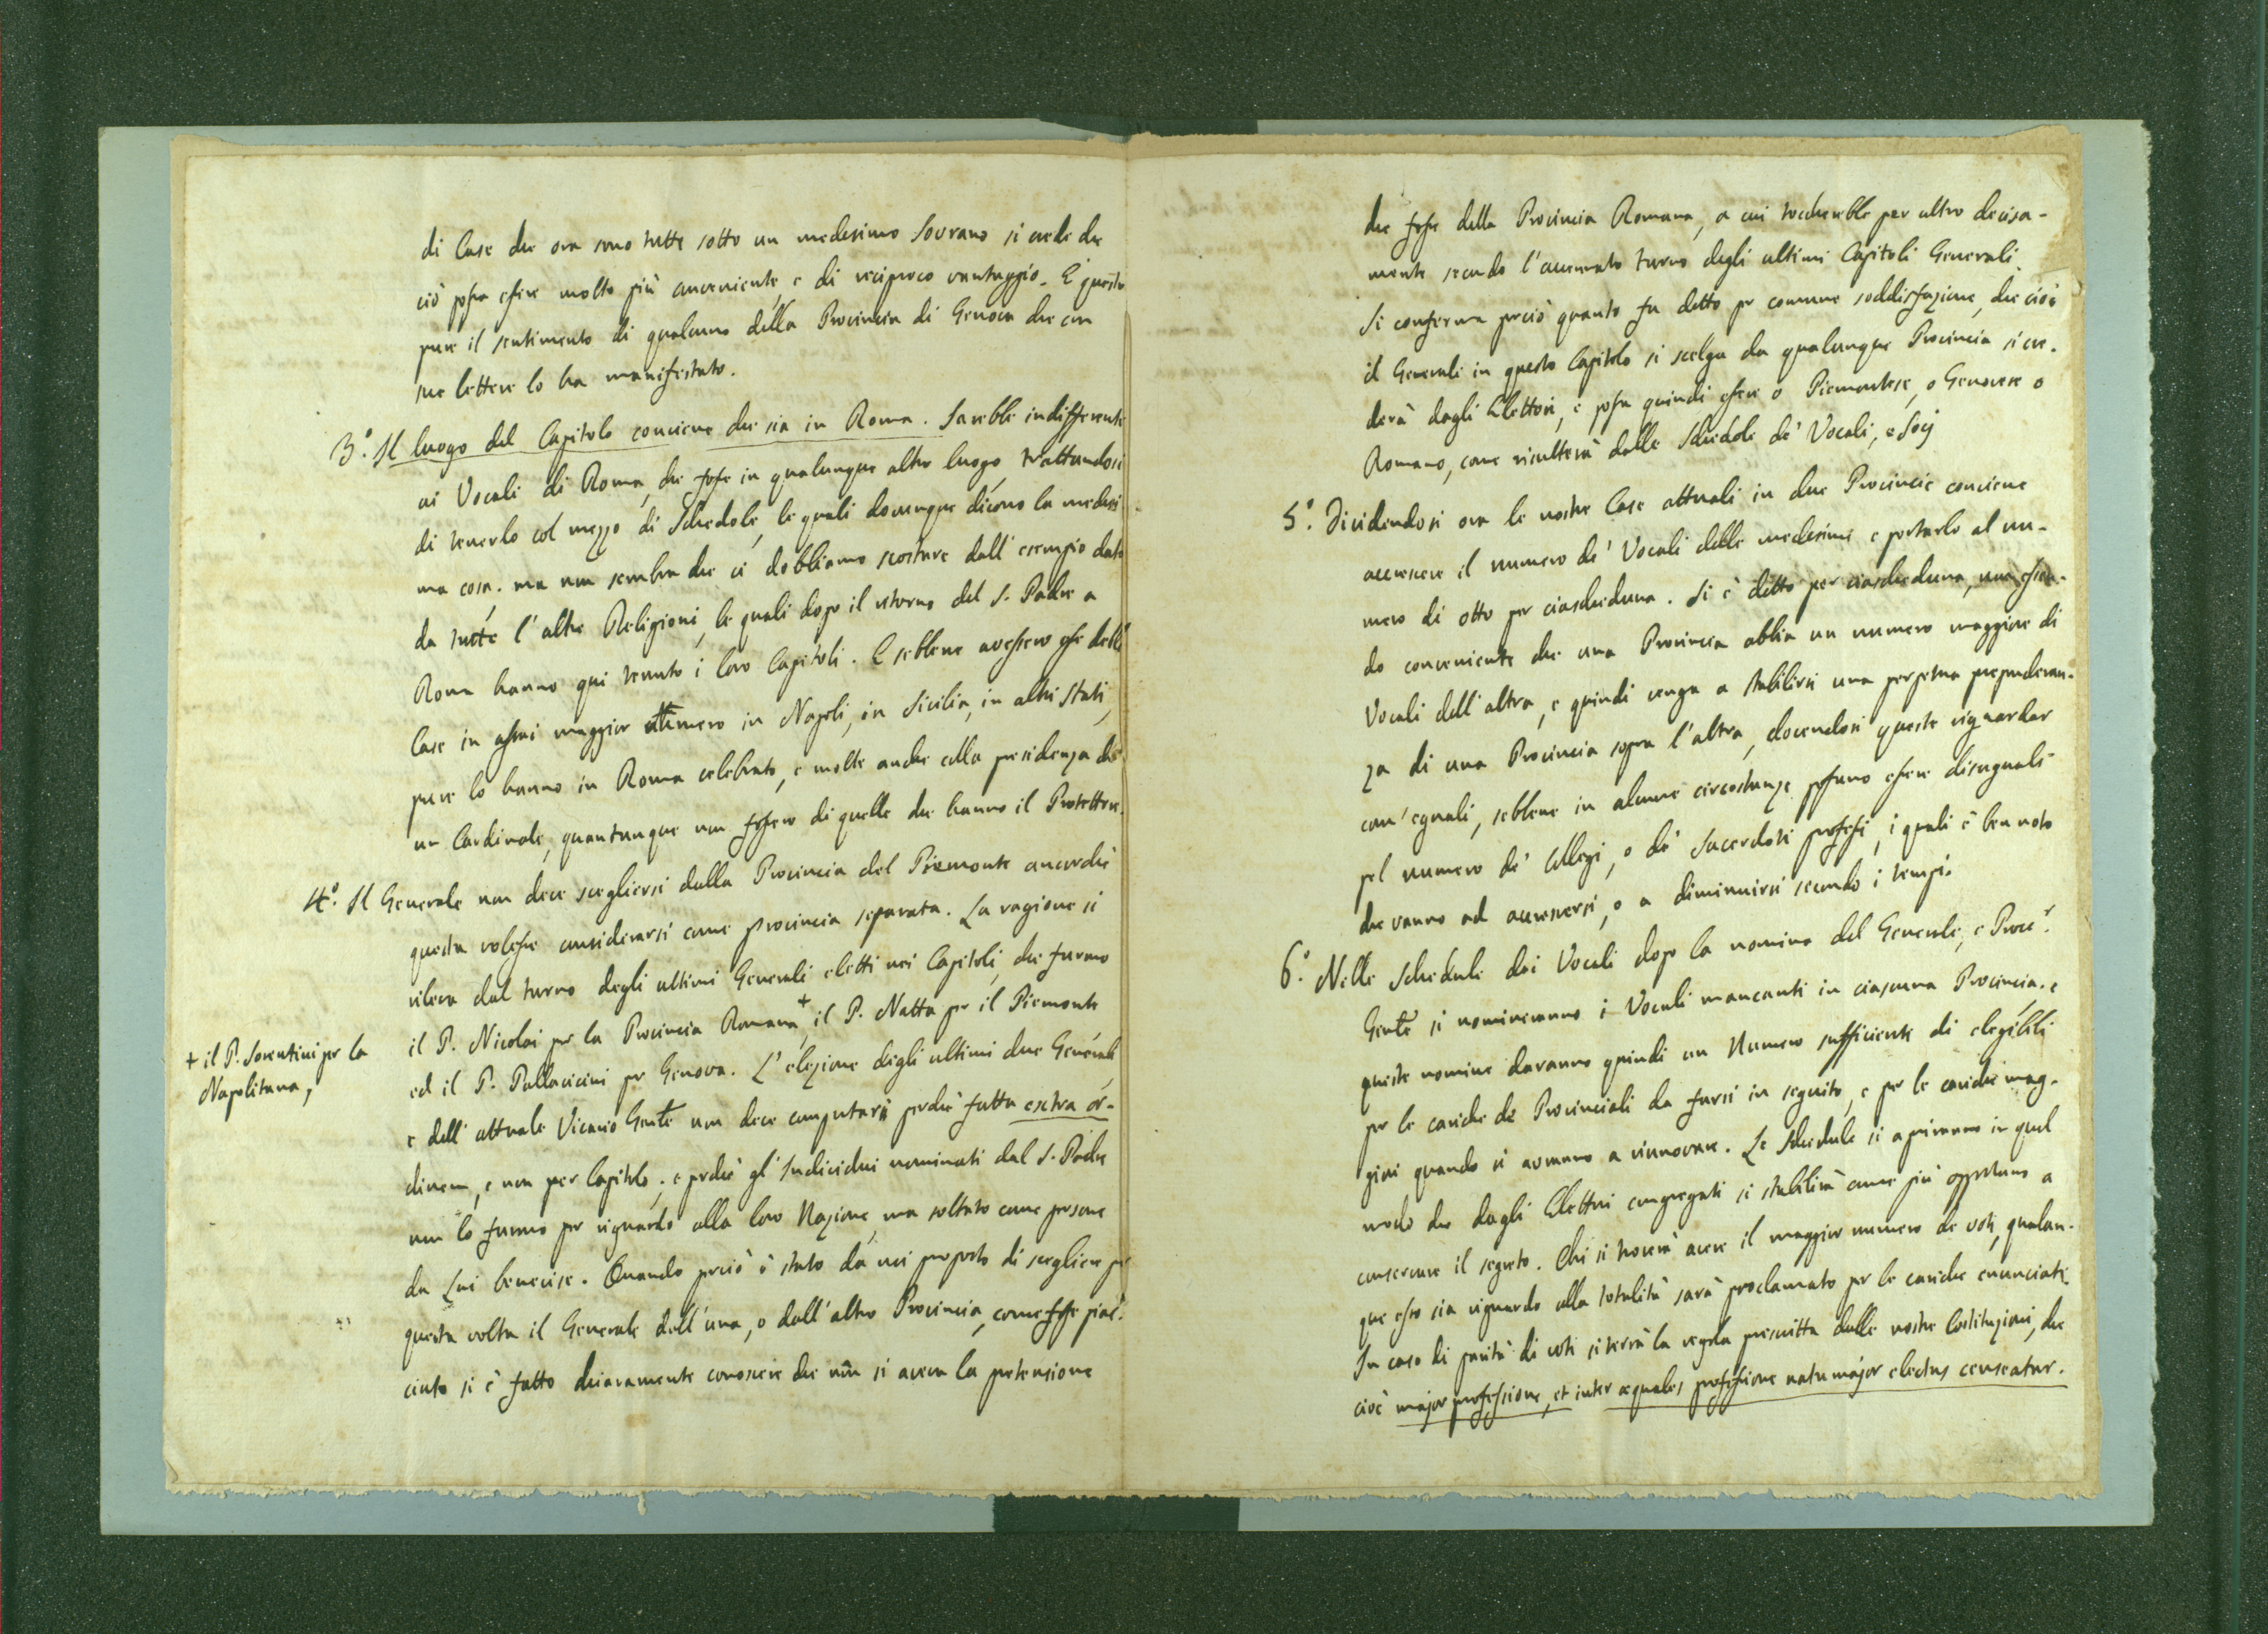 di Case che ora sono tutte sotto un medesimo Sovrano si crede che
ciò possa essere molto più conveniente, e di reciproco vantaggio. E' questo
pure il sentimento di qualcuno della Provincia di Genova che con
sue lettere lo ha manifestato.
3.° Il luogo del Capitolo conviene che sia in Roma. Sarebbe indifferente
ai Vocali di Roma, che fosse in qualunque altro luogo, trattandosi
di tenerlo col mezzo di Schedole, le quali dovunque dicono la medesi
ma cosa. ma non sembra che ci dobbiamo scostare dall'esempio dato
da tutte l'altre Religioni, le quali dopo il ritorno del S. Padre a
Roma hanno qui tenuto i loro Capitoli. E sebbene avessero esse delle
Case in assai maggior numero in Napoli, in Sicilia, in altri Stati,
pure lo hanno in Roma celebrato, e molte anche colla presidenza di
un Cardinale, quantunque non fossero di quelle che hanno il Protettore.
4.° Il Generale non deve scegliersi dalla Provincia del Piemonte ancorchè
questa volesse considerarsi come provincia separata. La ragione si
rileva dal turno degli ultimi Generali eletti nei Capitoli, che furono
il P. Nicolai per la Provincia Romana,+ il P. Natta per il Piemonte
+ il P. Sorentini per la
Napolitana,
ed il P. Pallavicini per Genova. L'elezione degli ultimi due Generali,
e dell'attuale Vicario Gen̄le non deve computarsi perchè fatta extra or-
dinem, e non per Capitolo; e perchè gl'Individui nominati dal S. Padre
non lo furono per riguardo alla loro Nazione, ma soltato come persone
da Lui benevise. Quando perciò è stato da noi proposto di scegliere per
questa volta il Generale dell'una, o dall'altra Provincia, come fosse piac-
ciuto si è fatto chiaramente conoscere che non si aveva la pretensione
che fosse della Provincia Romana, a cui toccherebbe per altro decisa-
mente secondo l'accennato turno degli ultimi Capitoli Generali.
Si conferma perciò quanto fu detto per comune soddisfazione, che cioè
il Generale in questo Capitolo si scelga da qualunque Provincia si cre-
derà dagli Elettori, e possa quindi essere o Piemontese, o Genovese o
Romano, come risulterà dalle Schedole de' Vocali, e Socij
5.° Dividendosi ora le nostre Case attuali in due Provincie conviene
accrescere il numero de' Vocali delle medesime e portarlo al nu-
mero di otto per ciascheduna. Si è detto per ciascheduna, non essen-
do conveniente che una Provincia abbia un numero maggiore di
Vocali dell'altra, e quindi venga a stabilirsi una perpetua preponderan-
za di una Provincia sopra l'altra, dovendosi queste riguardar
com'eguali, sebbene in alcune circostanze possano essere disuguali
pel numero de' Collegi, o de' Sacerdoti professi, i quali è ben noto
che vanno ad accrescersi, o a diminuirsi secondo i tempi.
6.° Nelle Schedule dei Vocali dopo la nomina del Generale, e Procr.
Gen̄le si nomineranno i Vocali mancanti in ciascuna Provincia. e
queste nomine daranno quindi un Numero sufficiente di elegibili
per le cariche de' Provinciali da farsi in seguito, e per le cariche mag-
giori quando si avranno a rinnovare. Le Schedule si apriranno in quel
modo che dagli Elettori congregati si stabilirà come più opportuno a
conservare il segreto. Chi si troverà avere il maggior numero de voti, qualun-
que esso sia riguardo alla totalità sarà proclamato per le cariche enunciate.
In caso di parità di voti si terrà la regola prescritta dalle nostre Costituzioni, che
cioè major professione, et inter æquales professione natu major electus censeatur.